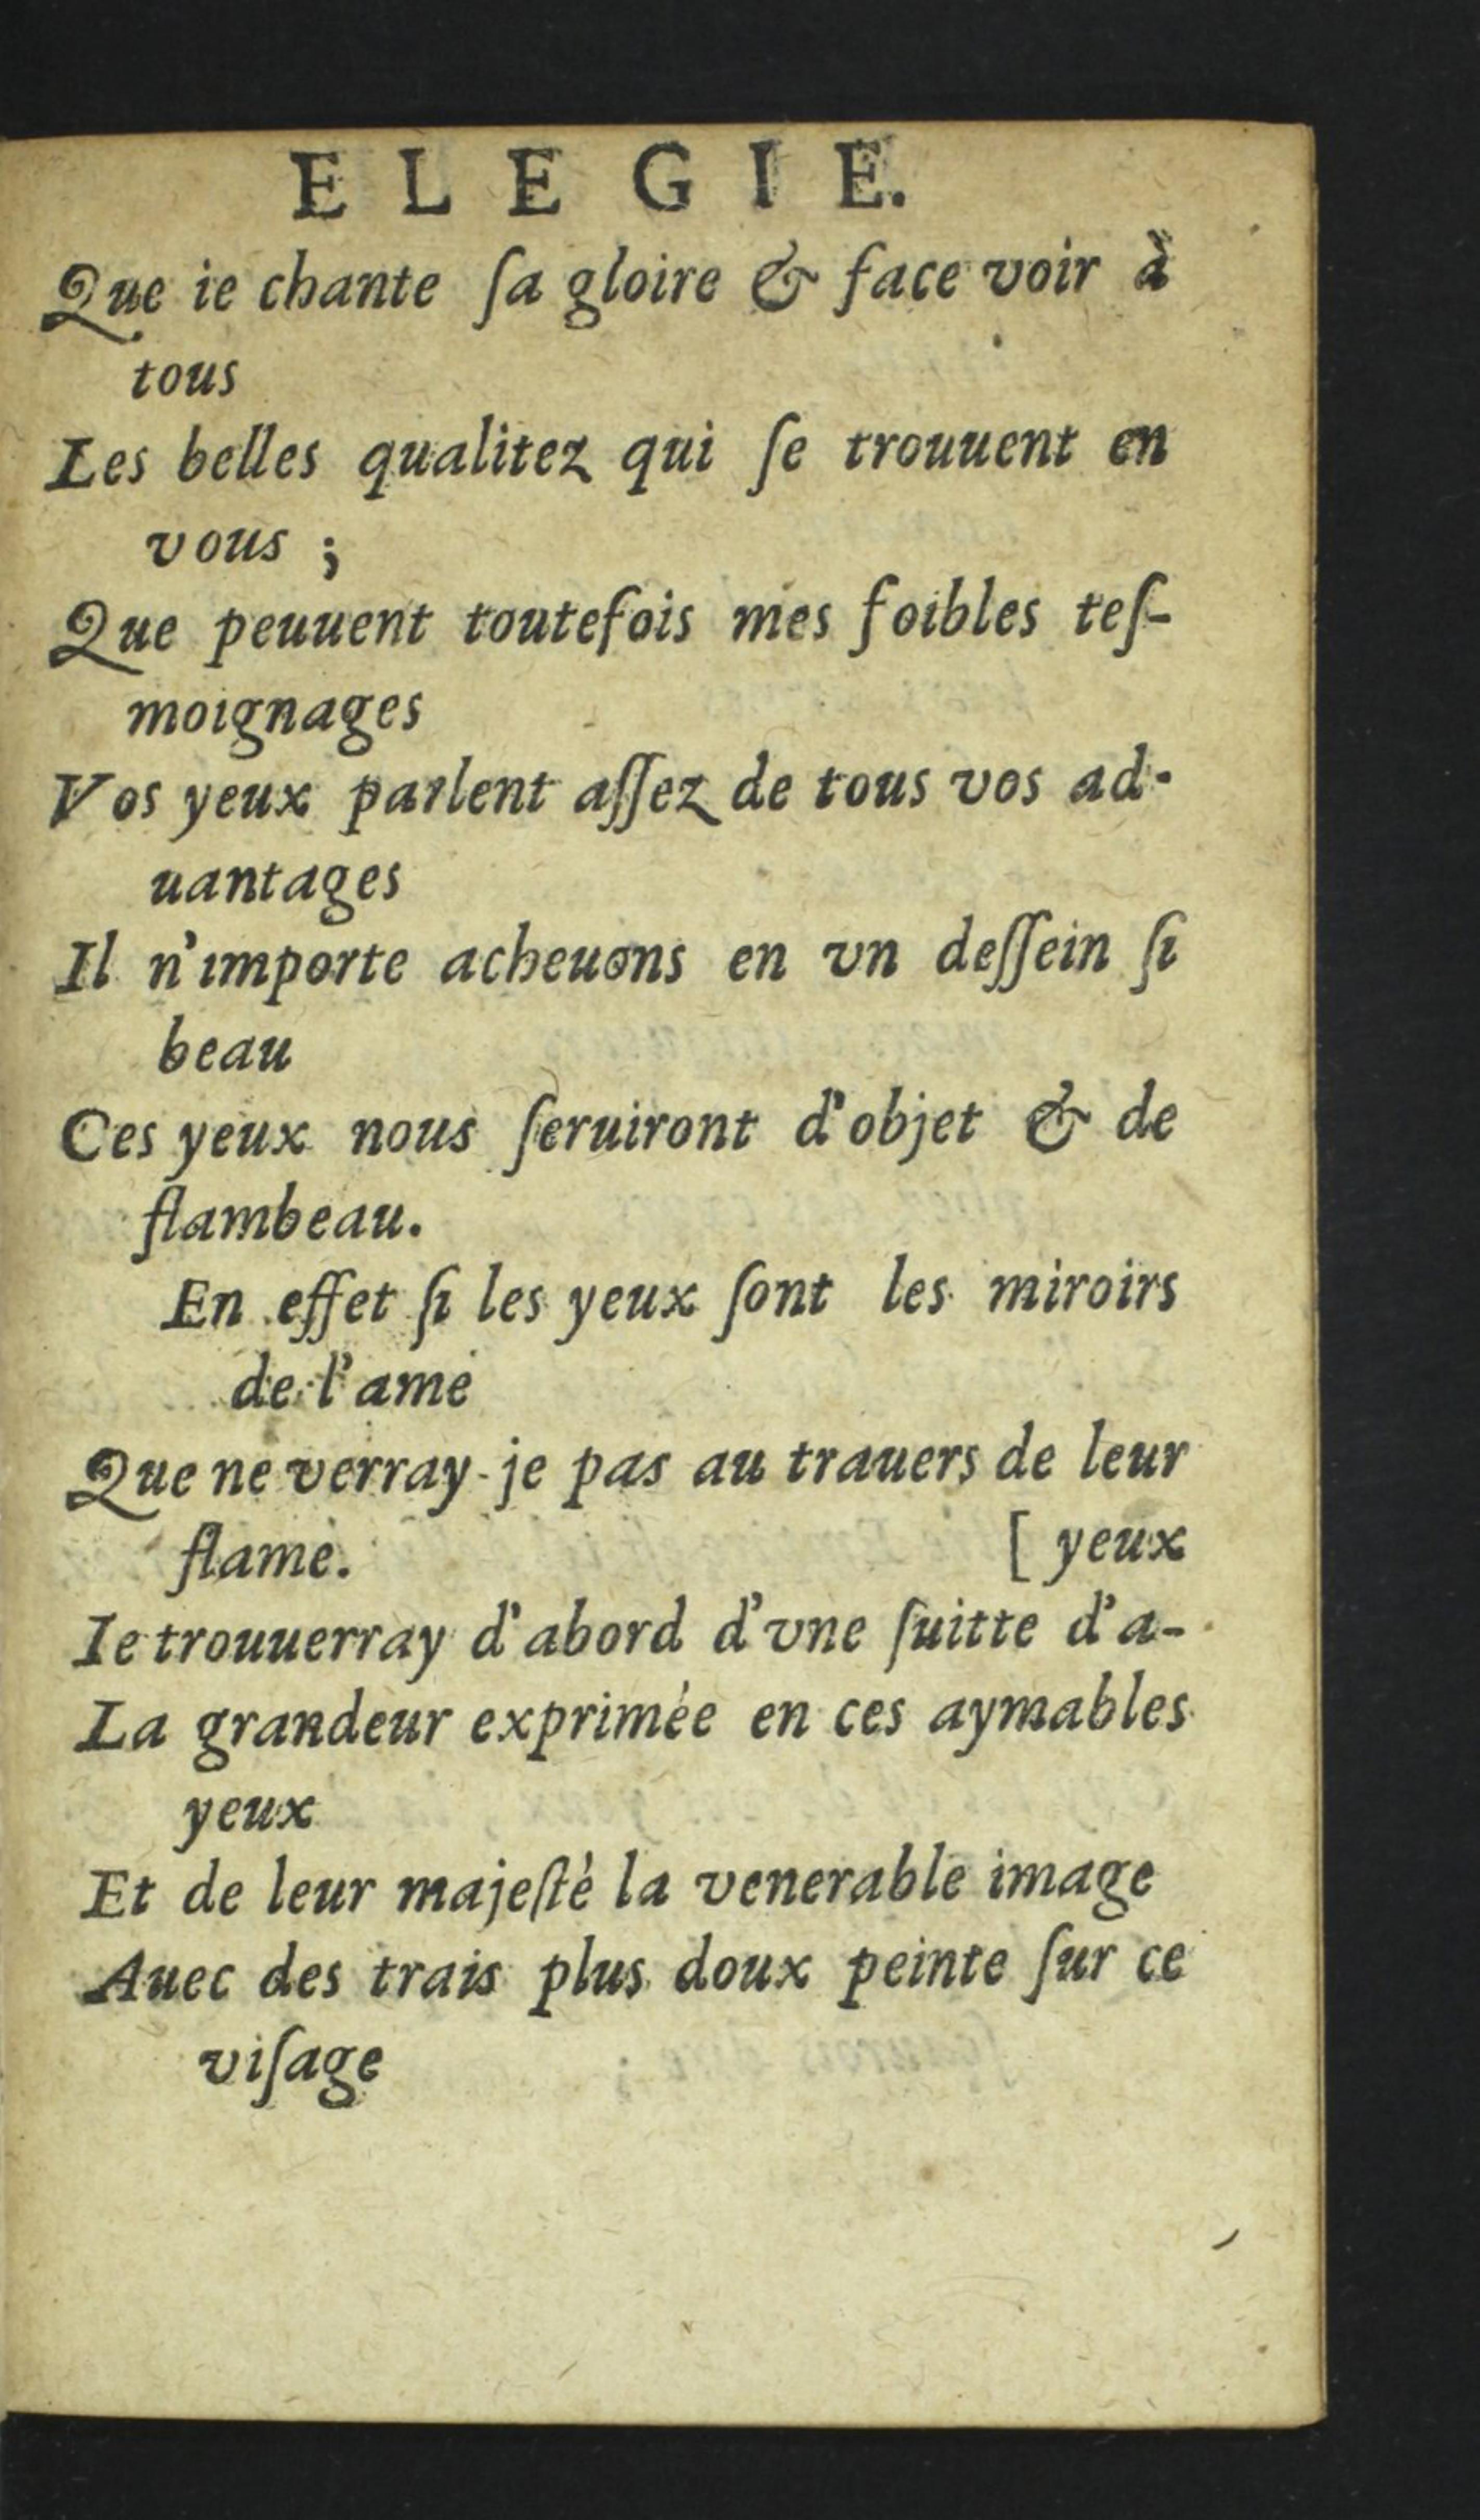 ELEGIE.
Que ie chante ſa gloire & face voir à
tous
Les belles qualitez qui ſe trouuent en
vous ;
Que peuuent toutefois mes foibles teſ-
moignages
Vos yeux parlent aſſez de tous vos ad-
uantages
Il n'importe acheuons en vn deſſein ſi
beau
Ces yeux nous ſeruiront d'objet & de
flambeau.
En effet ſi les yeux ſont les miroirs
de l'ame
Que ne verray-je pas au trauers de leur
flame. [ yeux
Ie trouuerray d'abord d'vne ſuitte d'a-
La grandeur exprimée en ces aymables
yeux
Et de leur majeſté la venerable image
Auec des trais plus doux peinte ſur ce
viſage